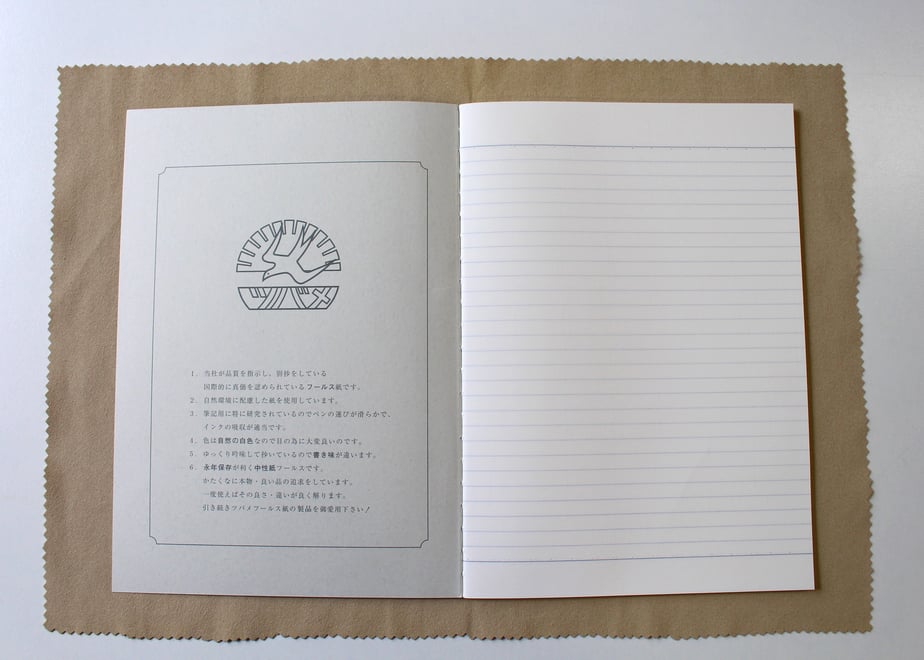 ツバメ
1. 当社が品質を指示し、別抄をしている
国際的に真価を認められているフールス紙です。
2. 自然環境に配慮した紙を使用しています。
3. 筆記用に特に研究されているのでペンの運びが滑らかで、
インクの吸収が適当です。
4. 色は自然の白色なので目の為に大変良いのです。
5. ゆっくり吟味して抄いているので書き味が違います。
6. 永年保存が利く中性紙フールスです。
かたくなに本物・良い品の追求をしています。
一度使えばその良さ・違いが良く解ります。
引き続きツバメフールス紙の製品を御愛用下さい!